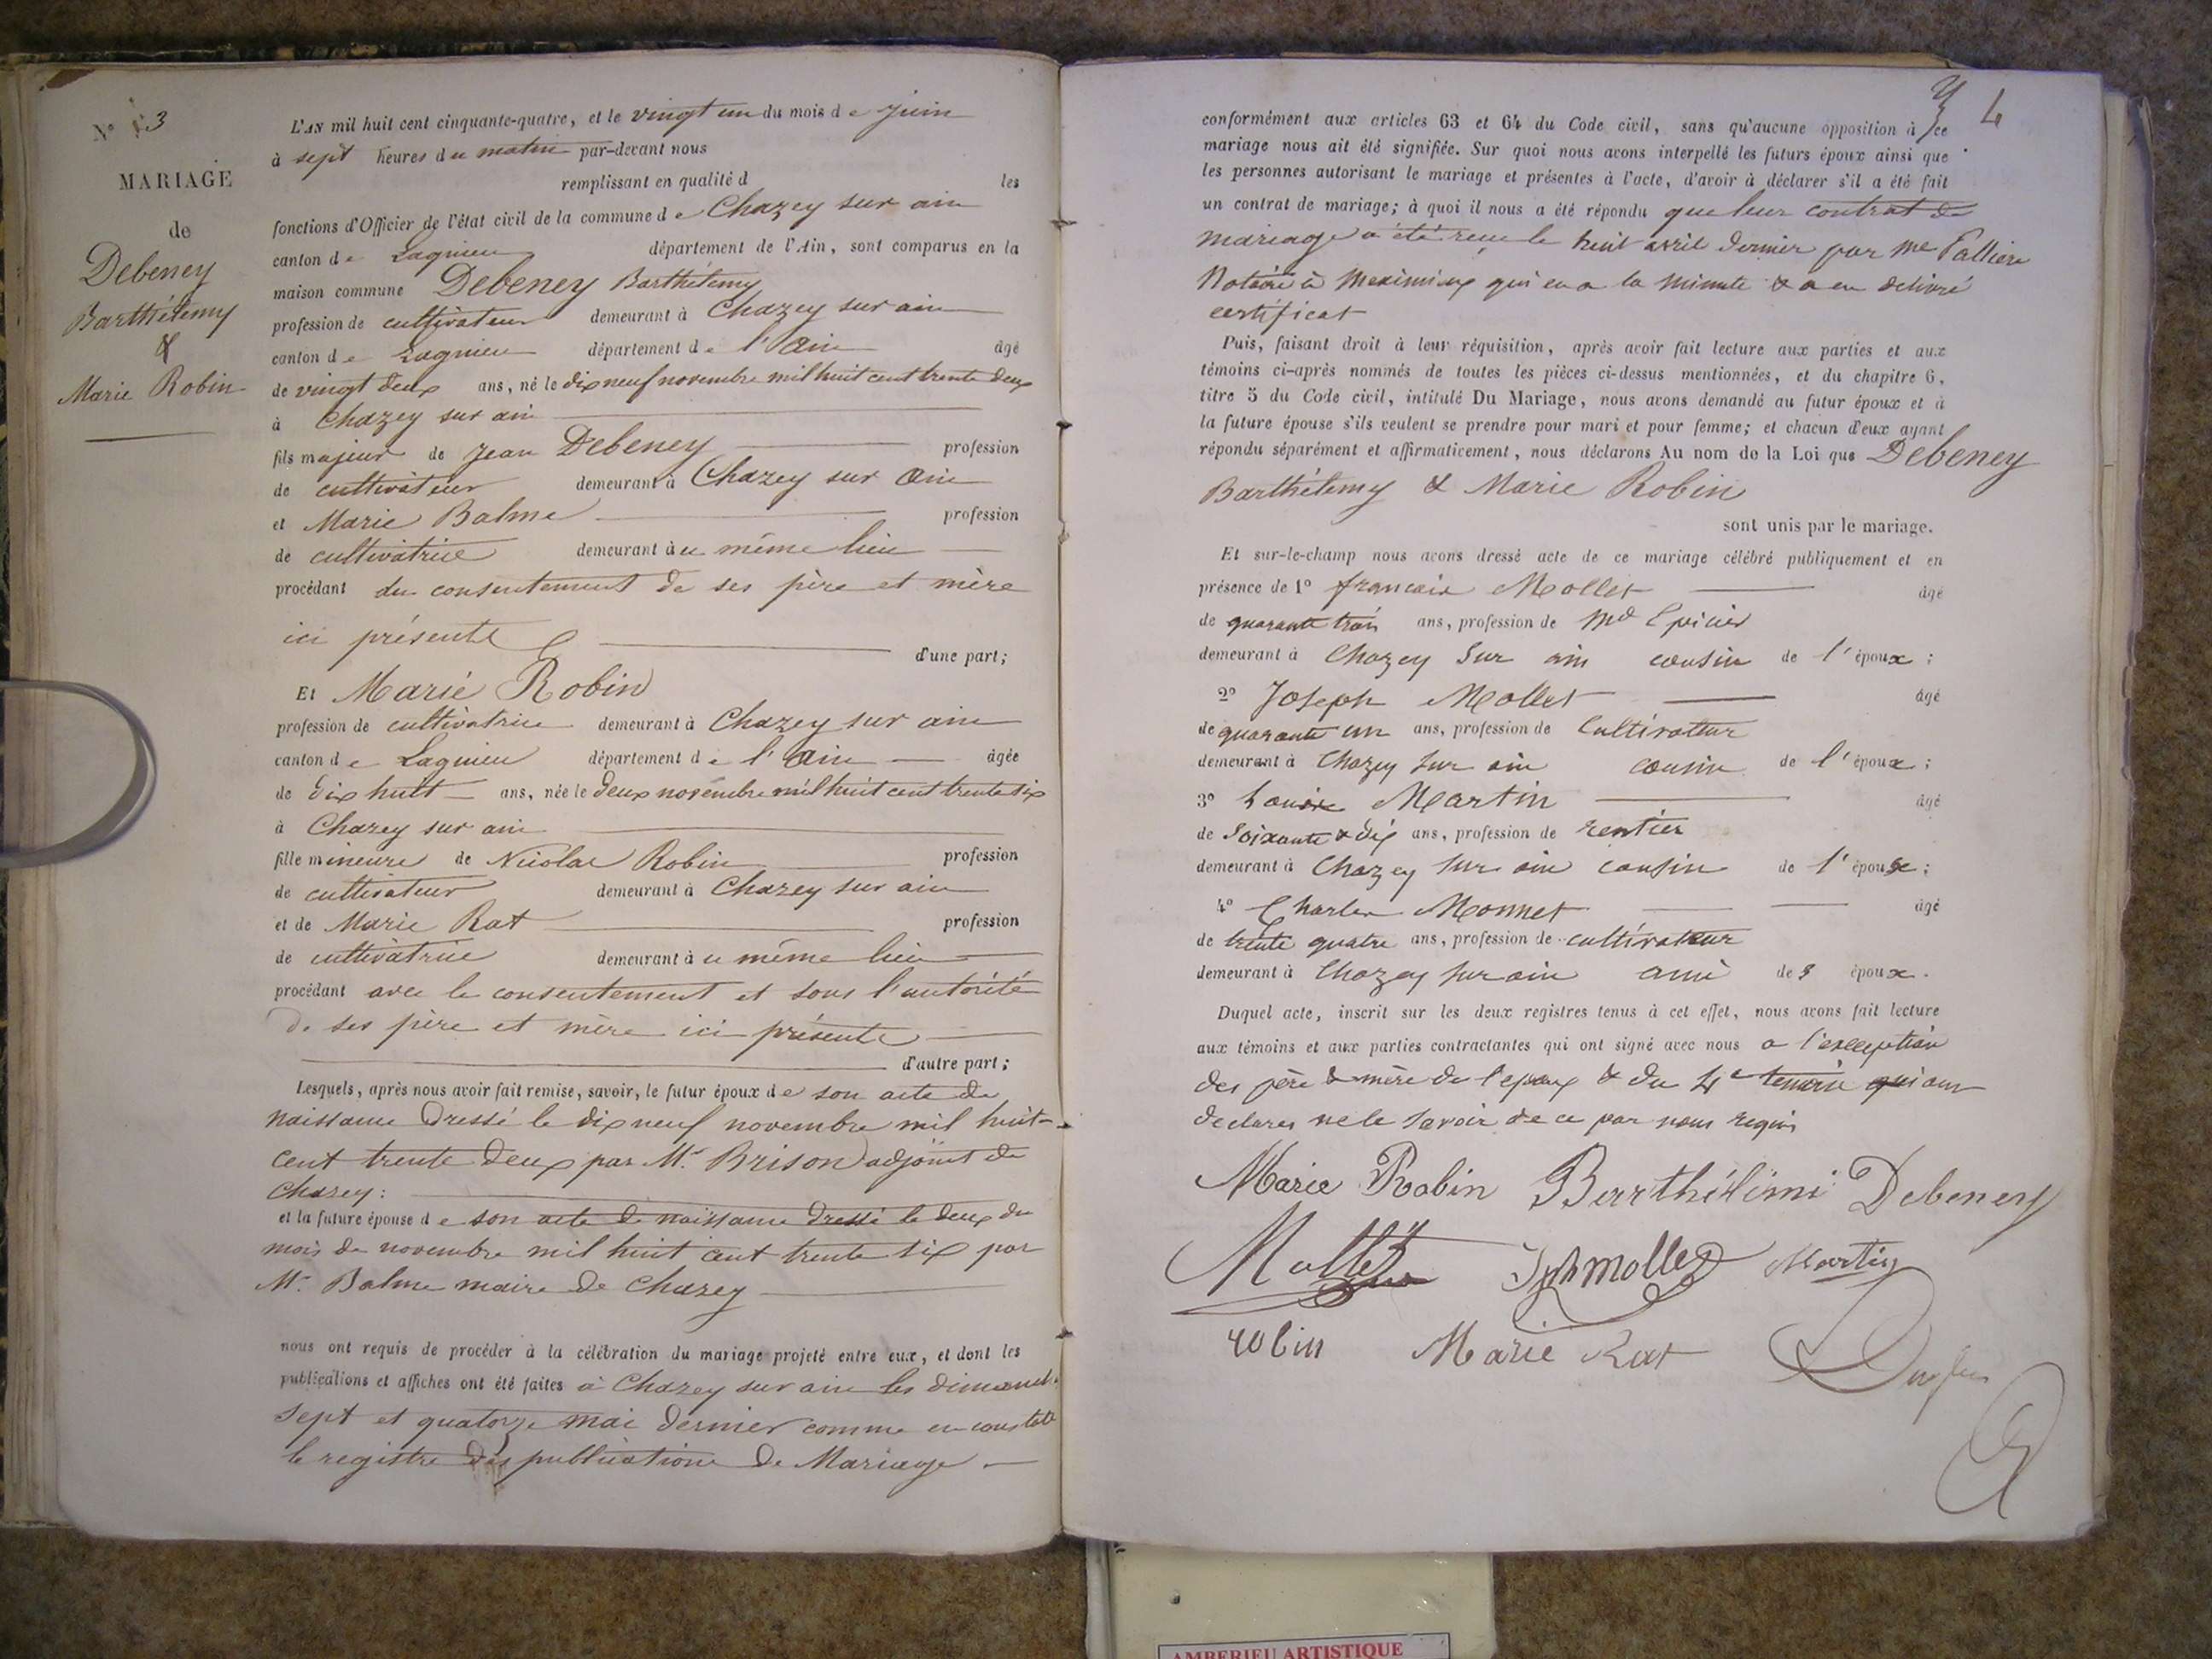 N° 3
MARIAGE
de
Debeney
Barthélemy
&
Marie Robin
L'AN mil huit cent cinquante-quatre, et le vingt un du mois de juin
à sept heures du matin par-devant nous
remplissant en qualité d les
fonctions d'Officier de l'état civil de la commune de Chazey sur ain
canton de Lagnieu département de l'Ain, sont comparus en la
maison commune Debeney Barthélemy
profession de cultivateur demeurant à Chazey sur ain
canton de Lagnieu département de l'Ain âgé
de vingt deux ans, né le dix neuf novembre mil huit cent trente deux
à Chazey sur ain
fils majeur de Jean Debeney profession
de cultivateur demeurant à Chazey sur Ain
et Marie Balme profession
de cultivatrice demeurant au même lieu
procédant du consentement de ses père et mère
ici présents d'une part;
Et Marie Robin
profession de cultivatrice demeurant à Chazey sur ain
canton de Lagnieu département de l'Ain âgée
de dix huit ans, née le deux novembre mil huit cent trente six
à Chazey sur ain
fille mineure de Nicolas Robin profession
de cultivateur demeurant à Chazey sur ain
et de Marie Rat profession
de cultivatrice demeurant au même lieu
procédant avec le consentement et sous l'autorité
de ses père et mère ici présents
d'autre part;
Lesquels, après nous avoir fait remise, savoir, le futur époux de son acte de
naissance dressé le dix neuf novembre mil huit-
cent trente deux par Mr. Brison adjoint de
Chazey:
et la future épouse de son acte de naissance dressé le deux du
mois de novembre mil huit cent trente six par
Mr. Balme maire de Chazey
nous ont requis de procéder à la célébration du mariage projeté entre eux, et dont les
publications et affiches ont été faites à Chazey sur ain les dimanch.
sept et quatorze mai dernier comme en constate
le registre des publications de Mariage
4
conformément aux articles 63 et 64 du Code civil, sans qu'aucune opposition à ce
mariage nous ait été signifiée. Sur quoi nous avons interpellé les futurs époux ainsi que
les personnes autorisant le mariage et présentes à l'acte, d'avoir à déclarer s'il a été fait
un contrat de mariage; à quoi il nous a été répondu que leur contrat de
mariage a été reçu le huit avril dernier par Me Palliere
Notaire à Meximieux qui en a la minute & a en delivré
certificat
Puis, faisant droit à leur réquisition, après avoir fait lecture aux parties et aux
témoins ci-après nommés de toutes les pièces ci-dessus mentionnées, et du chapitre 6,
titre 5 du Code civil, intitulé Du Mariage, nous avons demandé au futur époux et à
la future épouse s'ils veulent se prendre pour mari et pour femme; et chacun d'eux ayant
répondu séparément et affirmativement, nous déclarons Au nom de la Loi que Debeney
Barthélemy & Marie Robin
sont unis par le mariage.
Et sur-le-champ nous avons dressé acte de ce mariage célébré publiquement et en
présence de 1° françois Mollet âgé
de quarante trois ans, profession de Md Epicier
demeurant à Chazey Sur ain cousin de l'époux;
2° Joseph Mollet âgé
de quarante un ans, profession de Cultivateur
demeurant à Chazey sur ain cousin de l'époux;
3° Louis Martin âgé
de Soixante & dix ans, profession de rentier
demeurant à Chazey sur ain cousin de l'épouse;
4° Charles Monnet âgé
de trente quatre ans, profession de cultivateur
demeurant à Chazey sur ain ami des époux.
Duquel acte, inscrit sur les deux registres tenus à cet effet, nous avons fait lecture
aux témoins et aux parties contractantes qui ont signé avec nous a l'exception
des père & mère de l'epoux & du 4e temoin qui ont
declares ne le savoir de ce par nous requis
Marie Robin Barthélémi Debeney
Mollet Jph mollet Martin
robin Marie Rat
AMBERIEU ARTISTIQUE